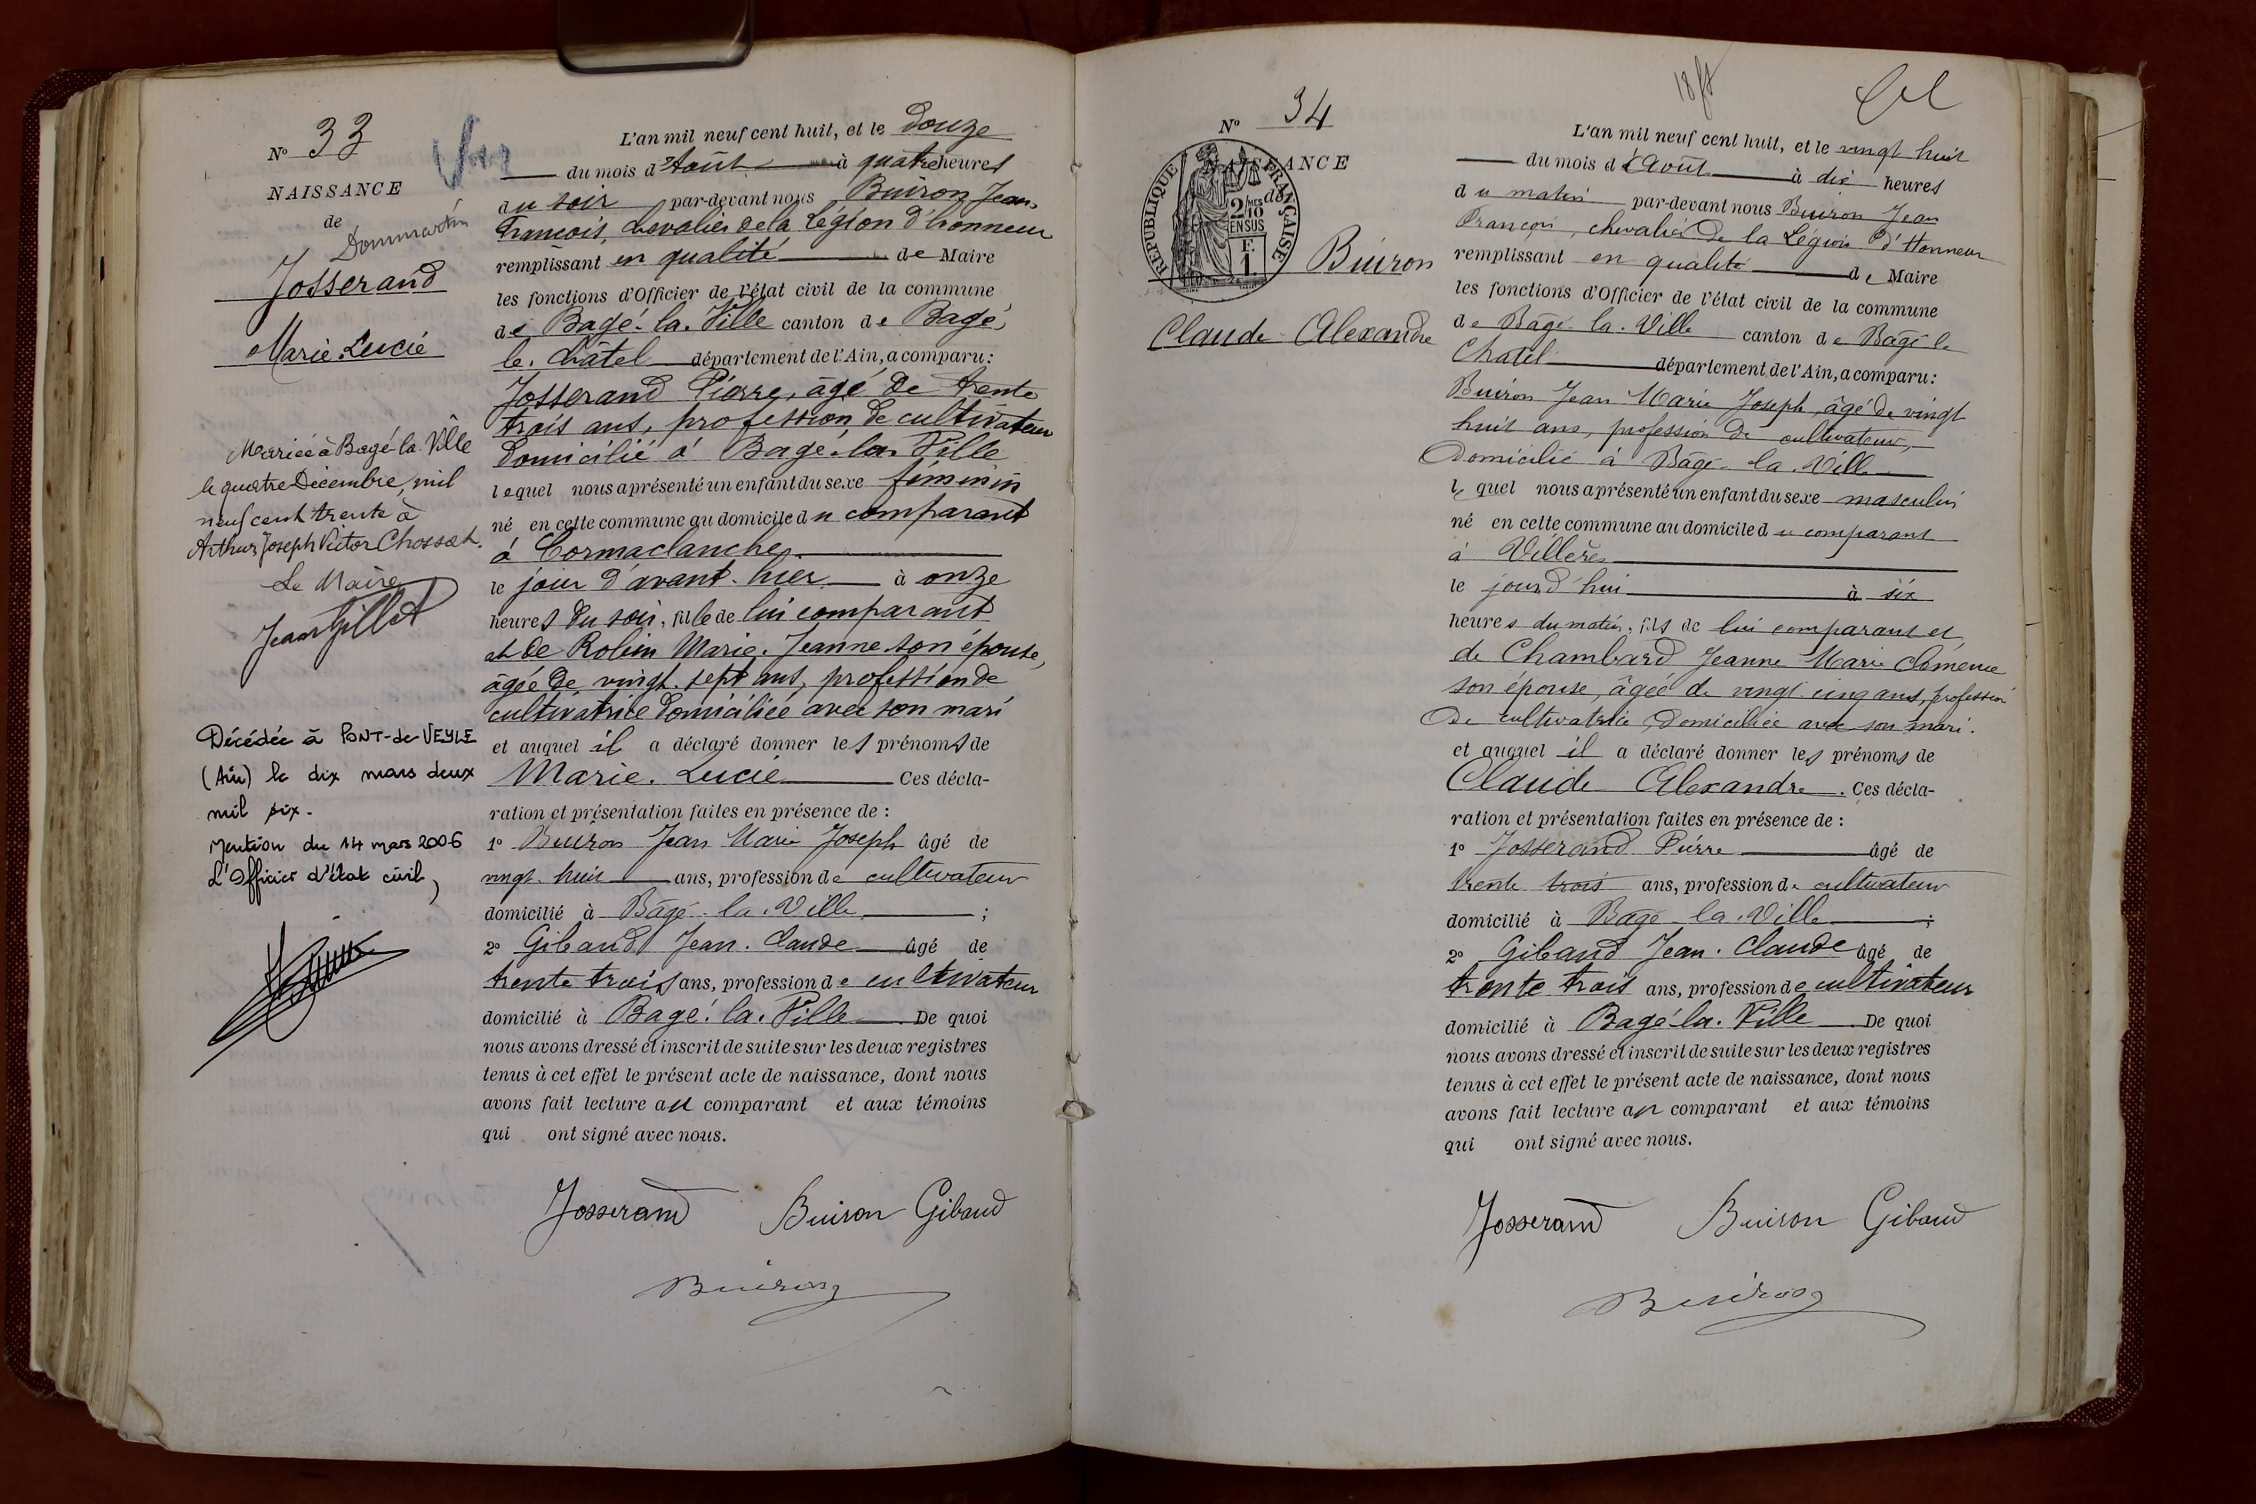 N° 33
NAISSANCE
de
Dommartin
Josserand
Marie. Lucie
Mariée à Bagé la Ville
le quatre Décembre, mil
neuf cent trente à
Arthur Joseph Victor Chossat.
Le Maire
Jean Gillet
Décédée à PONT-de-VEYLE
(Ain) le dix mars deux
mil six.
Mention du 14 mars 2006
L'Officier d'état civil,
L'an mil neuf cent huit, et le douze
du mois d'Août à quatre heures
du soir par-devant nous Buiron Jean-
François, Chevalier de la Légion d'honneur
remplissant en qualité de Maire
les fonctions d'Officier de l'état civil de la commune
de Bagé-la-Ville canton de Bagé
le Châtel département de l'Ain, a comparu:
Josserand Pierre, âgé de trente
trois ans, profession de cultivateur
domicilié à Bagé-la-Ville
lequel nous a présenté un enfant du sexe féminin
né en cette commune au domicile du comparant
à Cormaclanche
le jour d'avant-hier à onze
heures du soir, fille de lui comparant
et de Robin Marie-Jeanne son épouse,
âgée de vingt-sept ans, profession de
cultivatrice domiciliée avec son mari
et auquel il a déclaré donner les prénoms de
Marie. Lucie Ces décla-
ration et présentation faites en présence de :
1° Buiron Jean Marie Joseph âgé de
vingt-huit ans, profession de cultivateur
domicilié à Bâgé-la-Ville ;
2° Gibaud Jean-Claude âgé de
trente trois ans, profession de cultivateur
domicilié à Bagé-la-Ville De quoi
nous avons dressé et inscrit de suite sur les deux registres
tenus à cet effet le présent acte de naissance, dont nous
avons fait lecture au comparant et aux témoins
qui ont signé avec nous.
Josserand Buiron Gibaud
Buiron
N° 34
NAISSANCE
de
REPUBLIQUE FRANÇAISE
2/10
MES
EN SUS
F.
1.
Buiron
Claude-Alexandre
L'an mil neuf cent huit, et le vingt huit
du mois d'Août à dix heures
du matin par-devant nous Buiron Jean
François, chevalier de la Légion d'Honneur
remplissant en qualité de Maire
les fonctions d'Officier de l'état civil de la commune
de Bâgé-la-Ville canton de Bâgé le
Chatel département de l'Ain, a comparu:
Buiron Jean Marie Joseph, âgé de vingt
huit ans, profession de cultivateur,
Domicilié à Bâgé-la-Ville
lequel nous a présenté un enfant du sexe masculin
né en cette commune au domicile du comparant
à Villères
le jourd'hui à six
heures du matin, fils de lui comparant et
de Chambard Jeanne Marie Clémence
son épouse, âgée de vingt cinq ans, profession
De cultivatrice, Domiciliée avec son mari.
et auquel il a déclaré donner les prénoms de
Claude Alexandre. Ces décla-
ration et présentation faites en présence de :
1° Josserand Pierre âgé de
trente trois ans, profession de cultivateur
domicilié à Bâgé-la-Ville ;
2° Gibaud Jean-Claude âgé de
trente trois ans, profession de cultivateur
domicilié à Bagé-la-Ville De quoi
nous avons dressé et inscrit de suite sur les deux registres
tenus à cet effet le présent acte de naissance, dont nous
avons fait lecture au comparant et aux témoins
qui ont signé avec nous.
Josserand Buiron Gibaud
Buiron